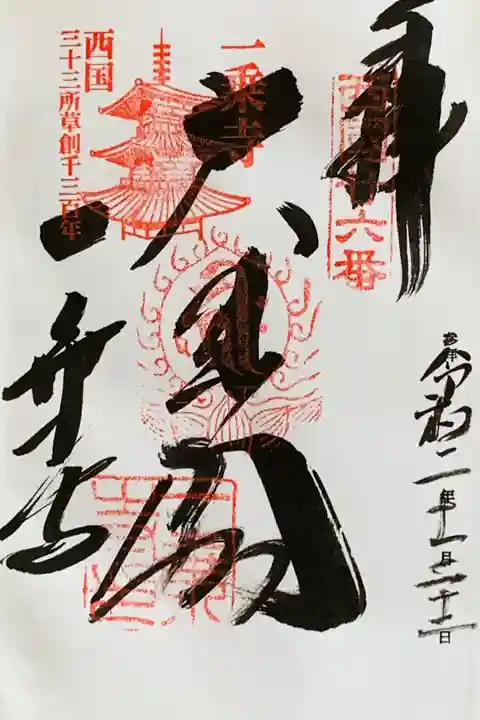 拝
西國廿六番
一乗寺
大悲閣
西国
三十三所草創千三百年
一乗寺
令和二年十一月二十二日